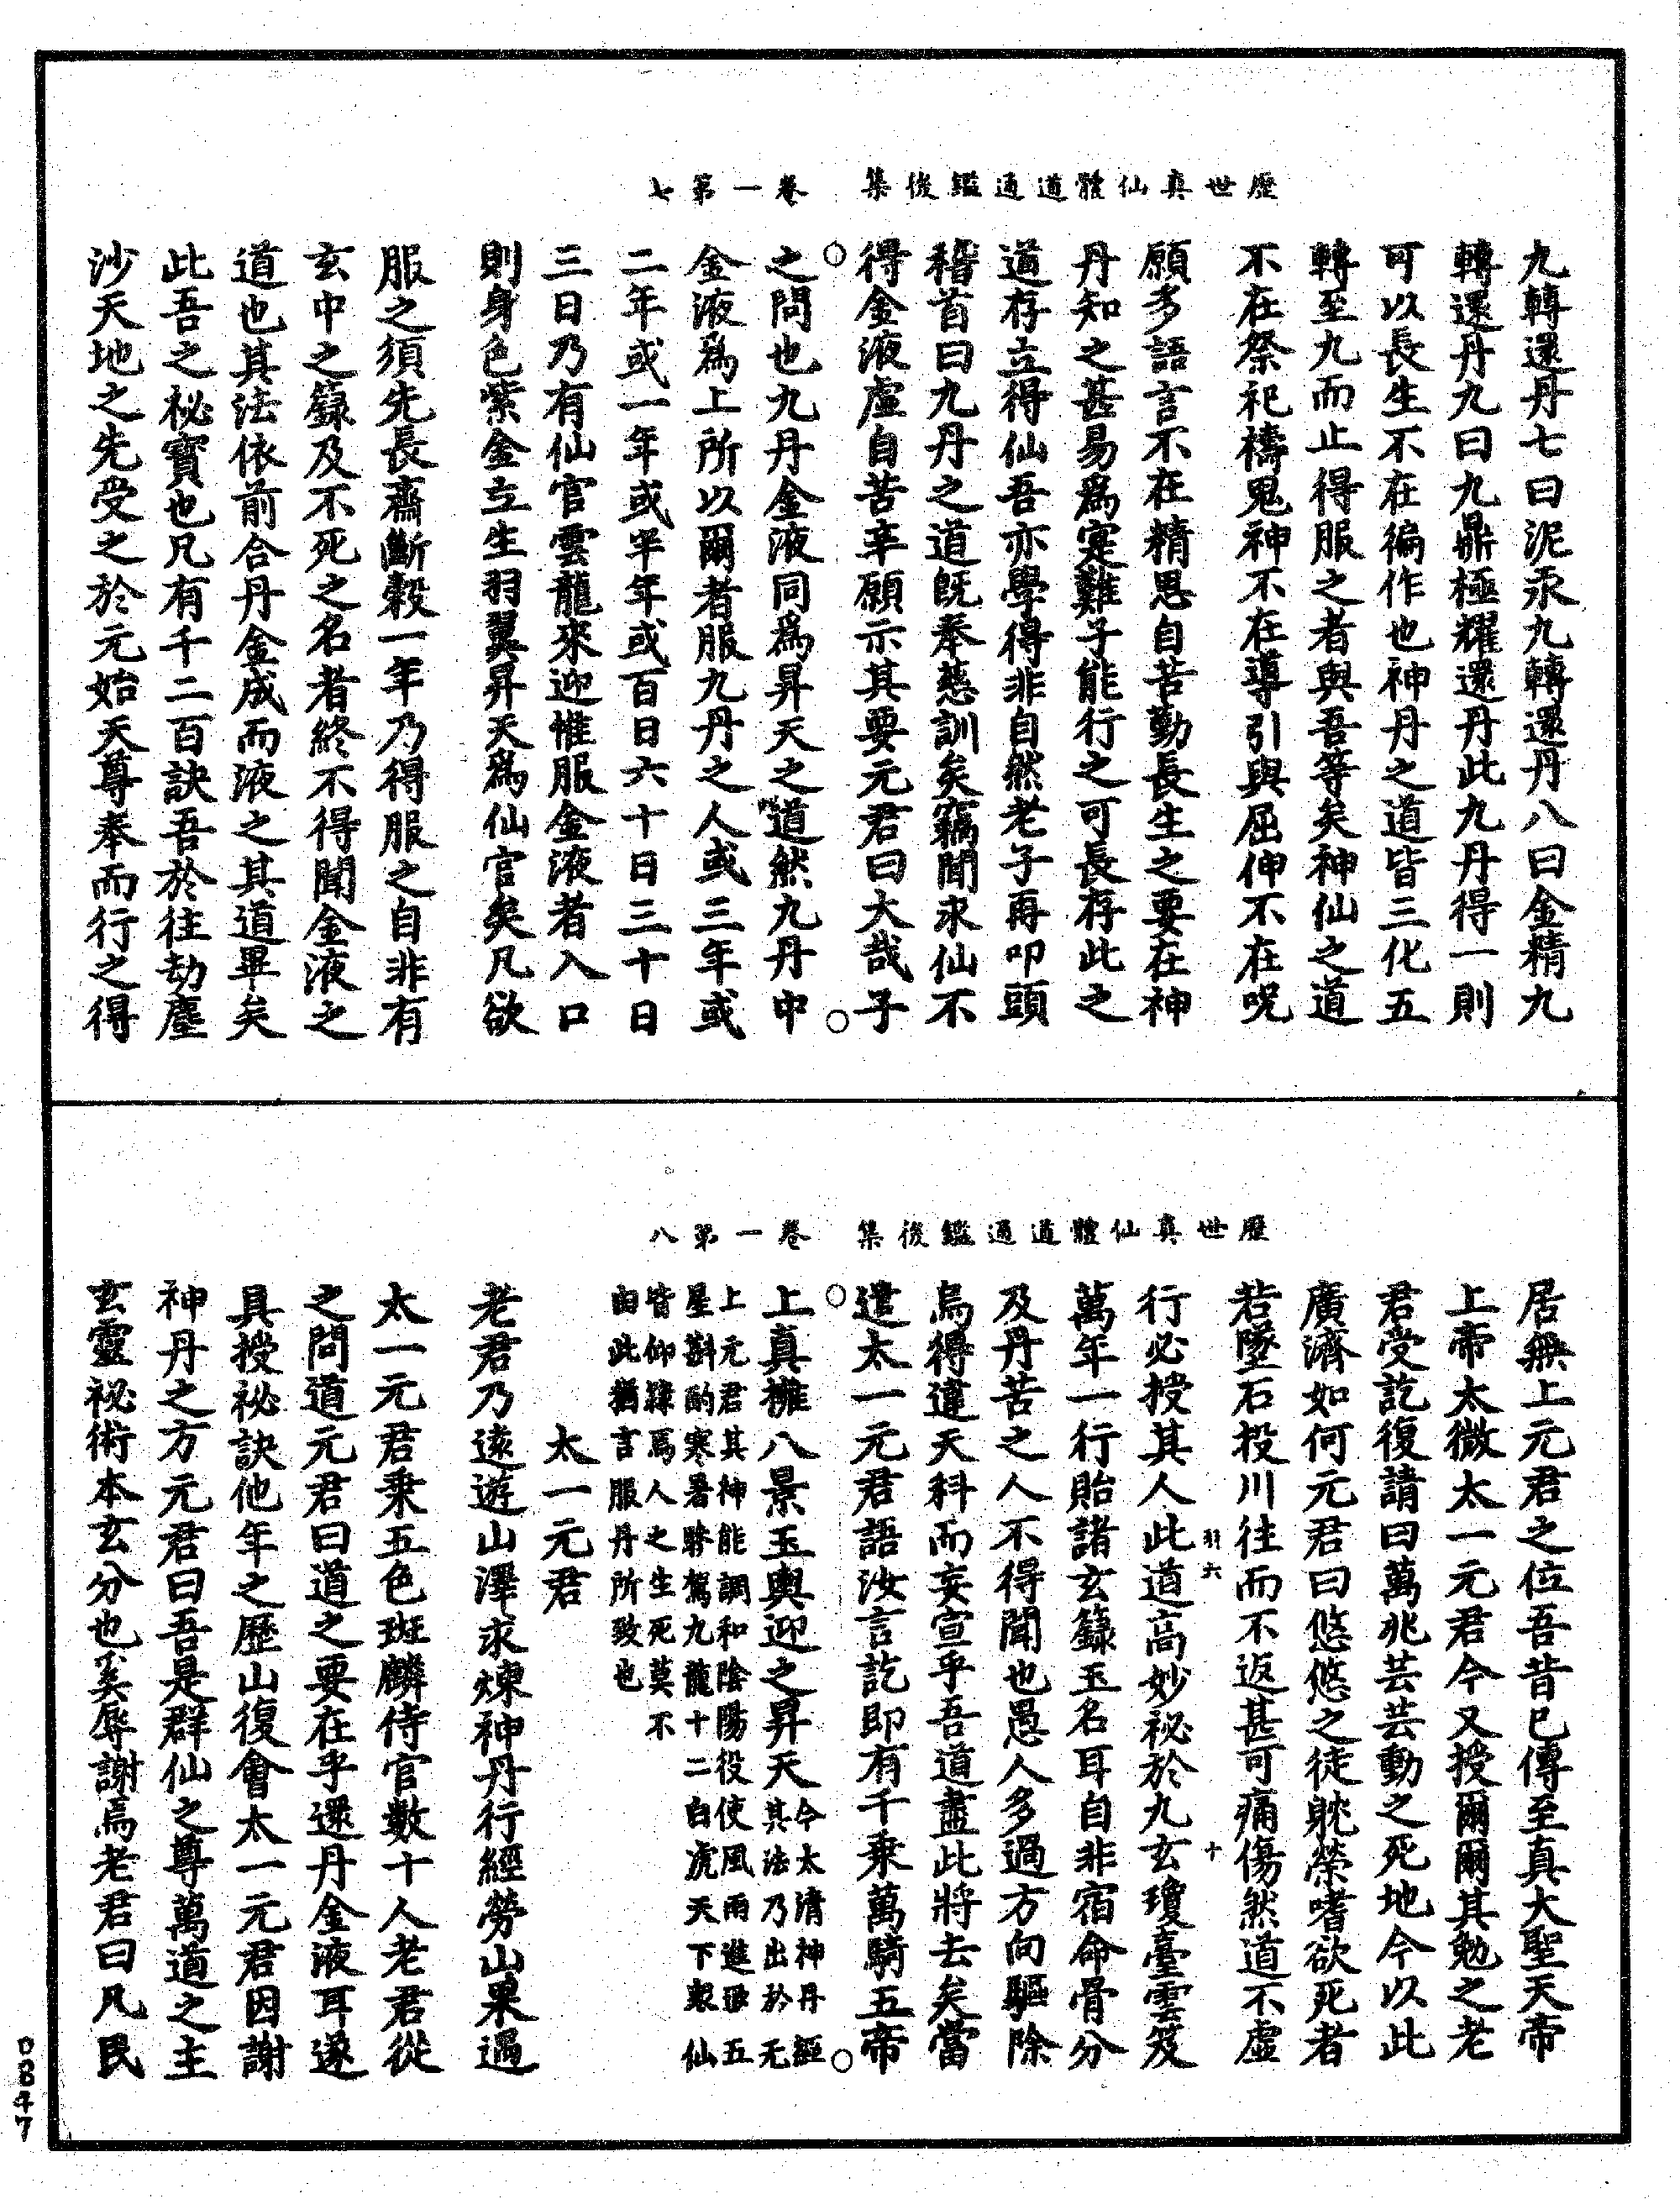 歷世真仙體道通鑑後集　卷一第七
九轉還丹七曰泥汞九轉還丹八曰金精九
轉還丹九曰九鼎極耀還丹此九丹得一則
可以長生不在徧作也神丹之道皆三化五
轉至九而止得服之者與吾等矣神仙之道
不在祭祀禱鬼神不在導引與屈伸不在呪
願多語言不在精思自苦勤長生之要在神
丹知之甚易爲寔難子能行之可長存此之
道存立得仙吾亦學得非自然老子再叩頭
稽首曰九丹之道既奉慈訓矣竊聞求仙不
得金液虛自苦辛願示其要元君曰大哉子
之問也九丹金液同爲昇天之道然九丹中
金液爲上所以爾者服九丹之人或三年或
二年或一年或半年或百日六十日三十日
三日乃有仙官雲龍來迎惟服金液者入口
則身色紫金立生羽翼昇天爲仙官矣凡欲
服之須先長齋斷穀一年乃得服之自非有
玄中之籙及不死之名者終不得聞金液之
道也其法依前合丹金成而液之其道畢矣
此吾之秘寶也凡有千二百訣吾於往劫塵
沙天地之先受之於元始天尊奉而行之得
歷世真仙體道通鑑後集　卷一第八
居無上元君之位吾昔已傳至真大聖天帝
上帝太微太一元君今又授爾爾其勉之老
君受訖復請曰萬兆芸芸動之死地今以此
廣濟如何元君曰悠悠之徒躭榮嗜欲死者
若墜石投川往而不返甚可痛傷然道不虛
羽六　十
行必授其人此道高妙祕於九玄瓊臺雲笈
萬年一行貽諸玄籙玉名耳自非宿命骨分
及丹苦之人不得聞也愚人多過方向驅除
焉得違天科而妄宣乎吾道盡此將去矣當
遣太一元君語汝言訖即有千乘萬騎五帝
上真擁八景玉輿迎之昇天今太清神丹經
其法乃出於元
上元君其神能調和陰陽役使風雨進退五
星斟酌寒暑驂駕九龍十二白虎天下衆仙
皆仰隸焉人之生死莫不
由此猶言服丹所致也
太一元君
老君乃遠遊山澤求煉神丹行經勞山果遇
太一元君乘五色斑麟侍官數十人老君從
之問道元君曰道之要在乎還丹金液耳遂
具授祕訣他年之歷山復會太一元君因謝
神丹之方元君曰吾是群仙之尊萬道之主
玄靈祕術本玄分也奚辱謝焉老君曰凡民
0847